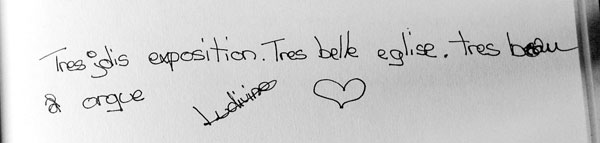 Tres jolis exposition. Tres belle eglise. tres beau
orgue
Ludivine